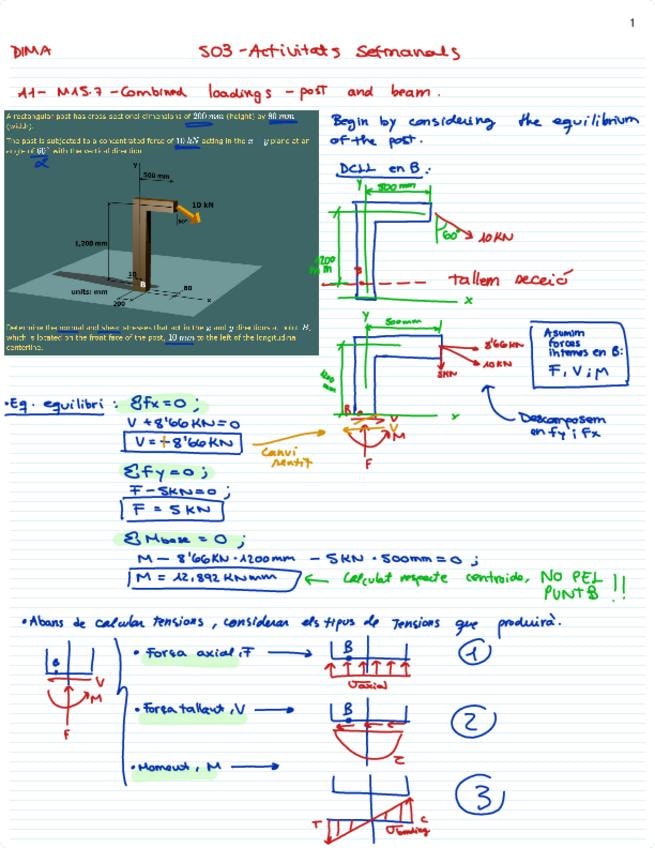 1
DIMA
S03 - Activitats Setmanals
A1 - M15.7 - Combined loadings - post and beam.
A rectangular post has cross-sectional dimensions of 200 mm (height) by 80 mm
(width).
The post is subjected to a concentrated force of 10 kN acting in the x - y plane at an
angle of 60° with the vertical direction.
α
y
500 mm
10 kN
60°
1,200 mm
10
B
units: mm
80
200
x
Determine the normal and shear stresses that act in the x and y directions at point B,
which is located on the front face of the post, 10 mm to the left of the longitudinal
centerline.
Begin by considering the equilibrium
of the post.
DCLL en B:
y
500mm
60°
10KN
1200
mm
B
tallem secció
x
y
500mm
8'66KN
10KN
5KN
B
V
V
M
F
x
Assumim
forces
internes en B:
F, V i M
Descomposem
en fy i fx
• Eq. equilibri: Σfx=0;
V + 8'66KN=0
V = + 8'66KN
Canvi
sentit
Σfy=0;
F - 5KN=0;
F = 5KN
ΣMbase = 0;
M - 8'66KN·1200mm - 5KN·500mm=0;
M = 12,892 KNmm
Calculat respecte centroide, NO PEL
PUNT B !!
• Abans de calcular tensions, considerar els tipus de tensions que produirà.
B
V
M
F
• Força axial, F
B
σaxial
1
• Força tallant, V
B
τ
2
• Moment, M
T
C
σbending
3